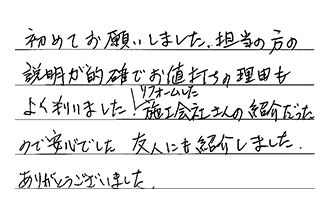 初めてお願いしました.担当の方の
説明が的確でお値打ちの理由も
よく判りました!リフォームした施工会社さんの紹介だった
ので安心でした 友人にも紹介しました.
ありがとうございました.